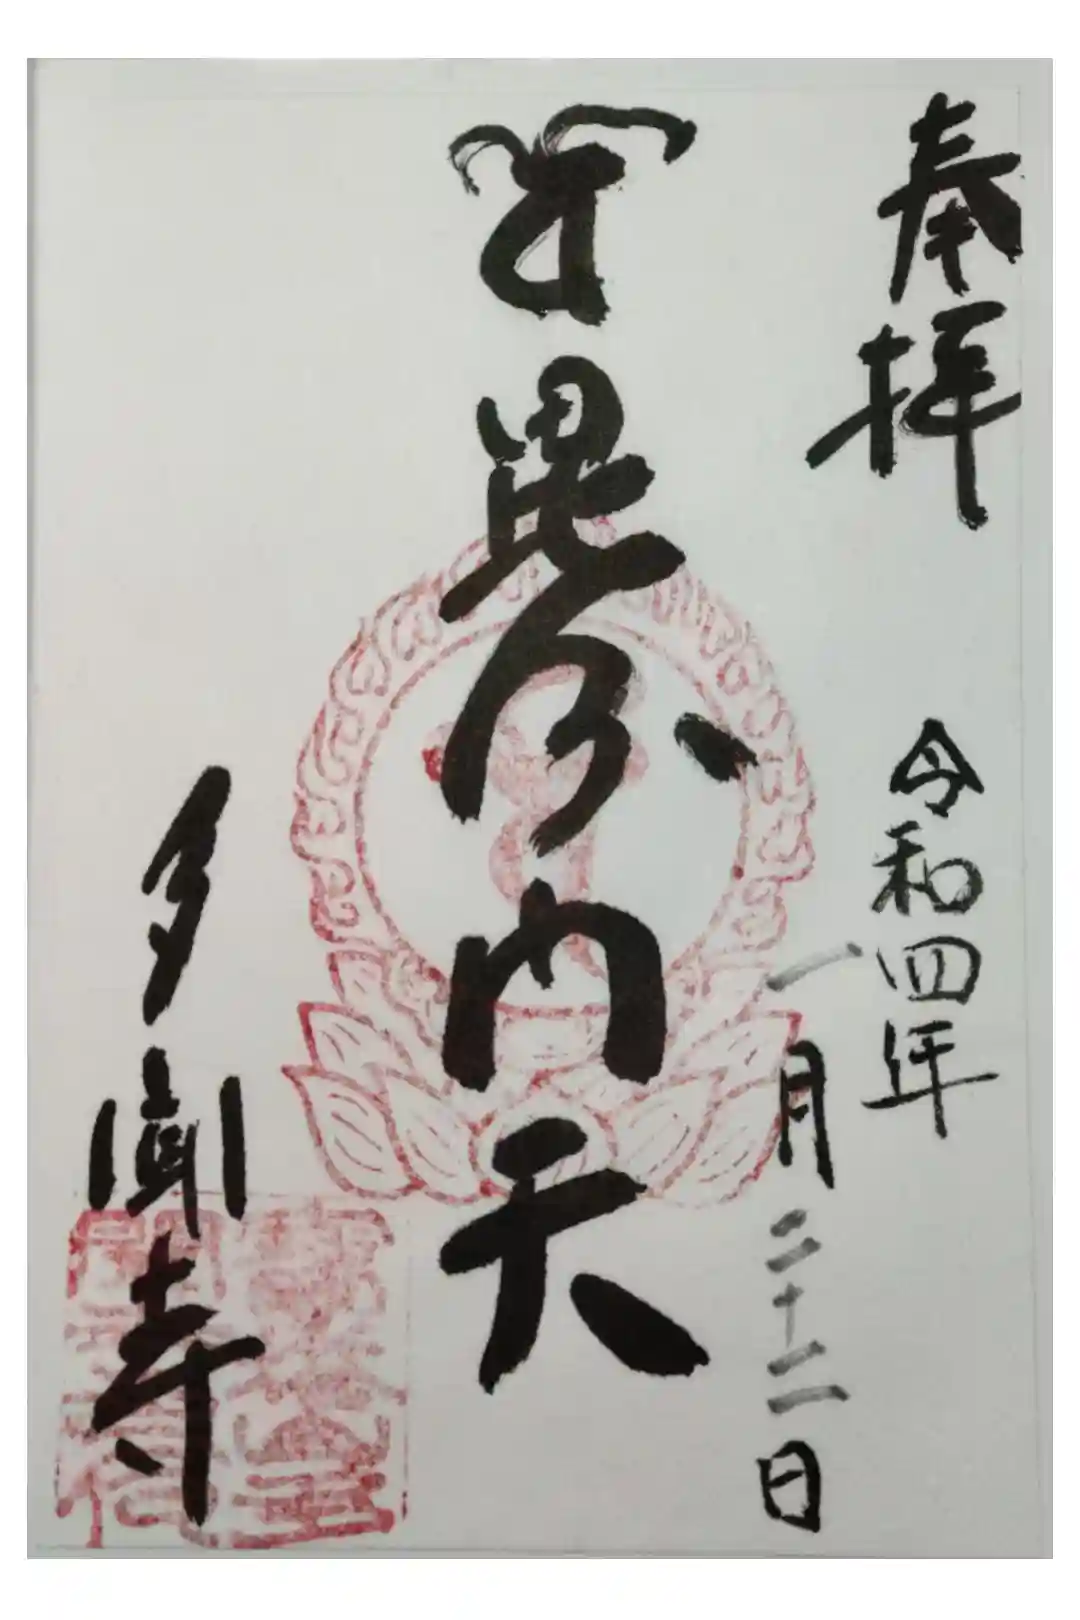 奉拝
令和四年
一月二十二日
毘沙門天
多聞寺